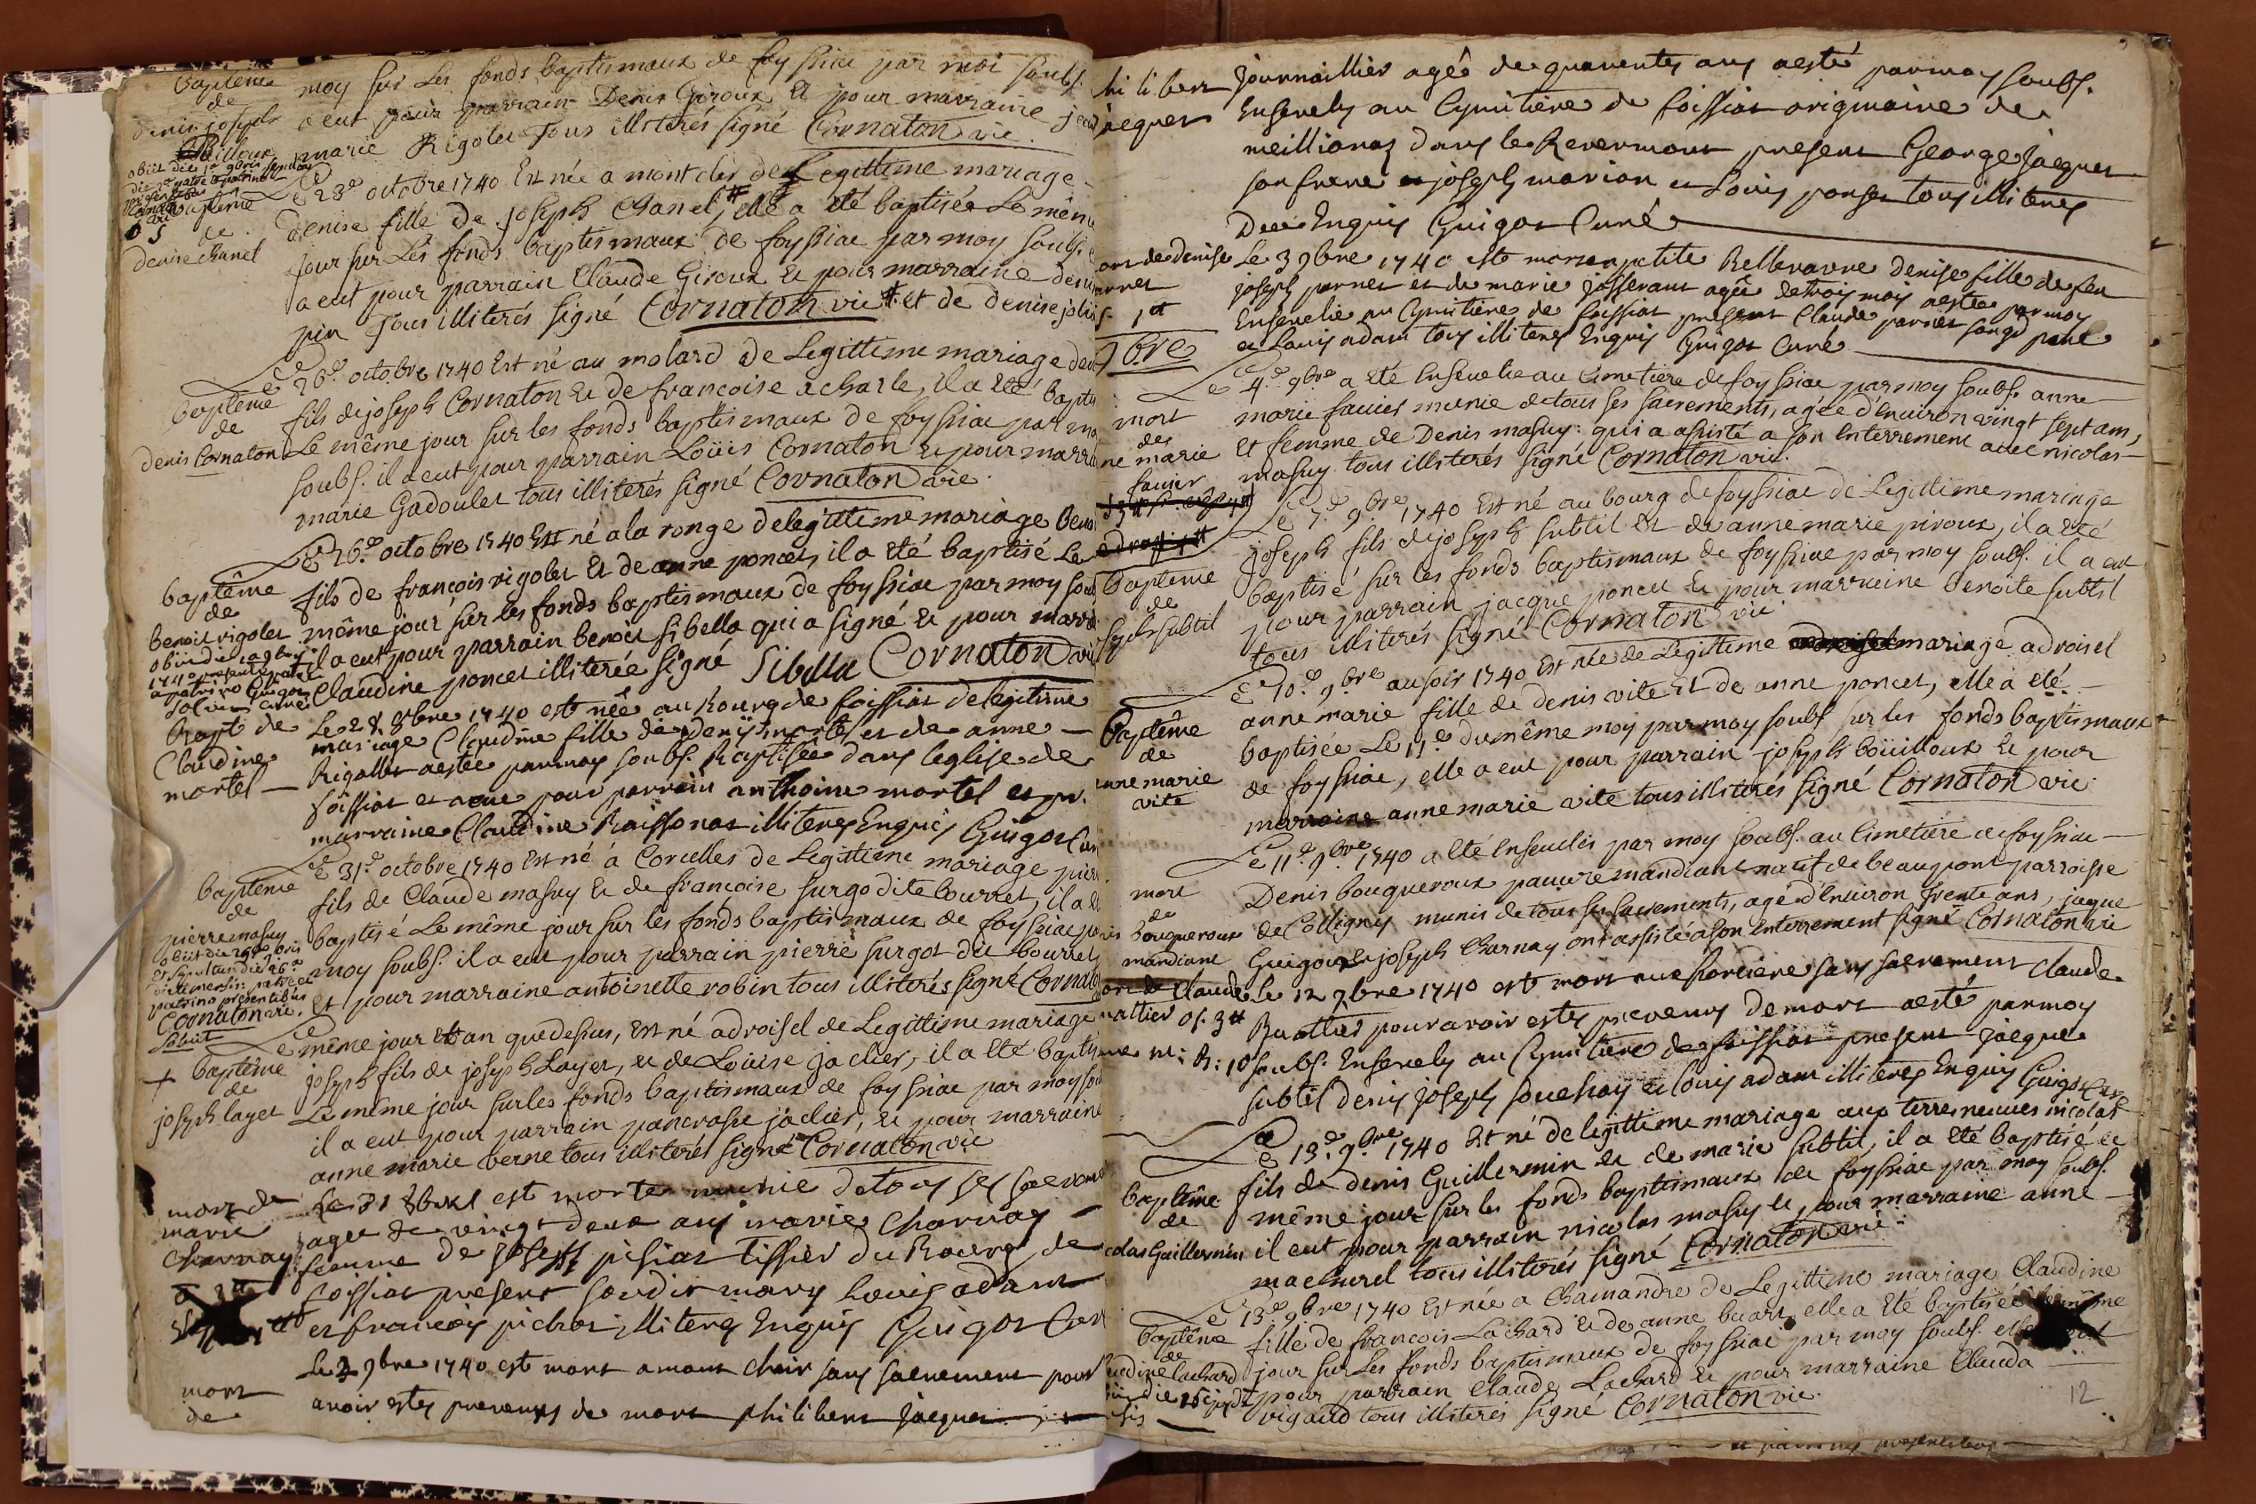 Baptême
de
denis joseph
Bouilloux
moy sur Les fonds baptismaux de foyssiac par moi soubs.
a eut pour parrain Denis Giroux et pour marraine
marie Rigolet Tous illiterés signé Cornaton vic.
baptême
de
denise chanel
Le 23e octobre 1740 Est née a mont de Legittime mariage
denise fille de joseph Chanel, # elle a été baptisée Le même
jour sur Les fonds baptismaux de foyssiac par moy soubs.
a eut pour parrain Claude Giroux et pour marraine denise
pin Tous illiterés signé Cornaton vic # et de denise joli
baptême
de
denis Cornaton
Le 26e octobre 1740 Est né au molard de Legittime mariage denis
fils de joseph Cornaton et de francoise acharle, il a été baptisé
Le même jour sur les fonds baptismaux de foyssiac par moy
soubs. il a eut pour parrain Loüis Cornaton et pour marraine
marie Gadoulet tous illiterés signé Cornaton vic.
baptême
de
benoit rigolet
Le 26e octobre 1740 Est né a la ronge de legittime mariage benoit
fils de francois rigolet et de anne poncet, il a été baptisé Le
même jour sur les fonds baptismaux de foyssiac par moy soubs
il a eut pour parrain benoit sibella qui a signé et pour marraine
Claudine poncet illiterée signé Sibella Cornaton vic
Bapt de
Claudine
mortel
Le 28 8bre 1740 est née au bourg de foissiat de legitime
mariage Claudine fille de denis mortel et de anne
Rigollet aestée par moy soubs. Baptisée dans leglise de
foissiat et a eue pour parrain anthoine mortel et pr.
marraine Claudine Raissonat illiterés Enquis Guigot Curé
baptême
de
pierre masuy
Le 31e octobre 1740 Est né à Corcelles de Legittime mariage pierre
fils de Claude masuy et de francoise surgo dite bourret, il a été
baptisé Le même jour sur les fonds baptismaux de foyssiac par
moy soubs. il a eut pour parrain pierre surgot dit bourret
et pour marraine antoinette robin tous illiterés signé Cornaton
+ baptême
de
joseph layet
Le même jour et an que dessus, Est né a droisel de Legittime mariage
joseph fils de joseph Layet, et de Louise jaclier, il a été baptisé
Le même jour sur les fonds baptismaux de foyssiac par moy soubs
il a eut pour parrain pancrasse jaclier, et pour marraine
anne marie verne tous illiterés signé Cornaton vic
mort de
marie
Charnay
Le 31 8bre est morte munie de tous ses sacrements
agée de vingt deux ans marie Charnay
femme de joseph pisiat Tissier du Bourg de
foissiat present soudit mary Louis adam
et francois pichot illiterés Enquis Guigot Curé
mort
de
Le 2 9bre 1740 est mort a mont chair sans sacrement pour
avoir estez prevenus de mort philibert Jacquet
philibert
jacquet
Journaillier agé de quarentes ans aesté par moy soubs.
Ensevely au Cymitiere de foissiat originaire de
meillionaz dans le Revermont present George Jacquet
son frere et joseph marion et Louis ponset tous illiterés
Enquis Guigot Curé
mort de denise
parnet
9bre
Le 3 9bre 1740 est morte a petite Bellevavre denise fille de feu
joseph parnet et de marie josserant agée de trois mois aestée par moy
Ensevelie au Cymitiere de foissiat present Claude parnet
et Louis adam tous illiterés Enquis Guigot Curé
mort
des
anne marie
favier
Le 4e 9bre a été Ensevelie au Cimetiere de foyssiac par moy soubs. anne
marie favier munie de tous ses sacrements, agée d'environ vingt sept ans,
et femme de Denis masuy: qui a assisté a son Enterrement avec nicolas
masuy tous illiterés signé Cornaton vic.
baptême
de
joseph subtil
Le 7e 9bre 1740 Est né au bourg de foyssiac de Legittime mariage
joseph fils de joseph subtil et de anne marie piroux, il a été
baptisé sur les fonds baptismaux de foyssiac par moy soubs. il a eut
pour parrain jacque poncet et pour marraine benoite subtil
tous illiterés signé Cornaton vic.
Baptême
de
anne marie
vite
Le 10e 9bre au soir 1740 Est née de Legittime mariage a droisel
anne marie fille de denis vite et de anne poncet, elle a été
baptisée Le 11e du même moy par moy soubs sur les fonds baptismaux
de foyssiac, elle a eut pour parrain joseph boüilloux et pour
marraine anne marie vite tous illiterés signé Cornaton vic
mort
de
denis bouqueroux
mandiant
Le 11e 9bre 1740 a été Enseveli par moy soubs. au Cimetiere de foyssiac
Denis bouqueroux pauvre mandiant natif de beaupont parroisse
de Collignis munis de tous ses sacrements, agé d'Environ Trente ans, jacque
Guigoux et joseph Charnay ont assisté a son Enterrement signé Cornaton vic
mort de Claude
Le 12 9bre 1740 est mort aux sans sacrement Claude
pour avoir estez prevenus de mort aesté par moy
soubs. Ensevely au Cymitiere de foissiat present jacque
subtil denis joseph souchay et Louis adam illiterés Enquis Guigot Curé
baptême
de
nicolas Guillermin
Le 13e 9bre 1740 Est né de legittime mariage aux terres neuves nicolas
fils de denis Guillermin et de marie subtil, il a été baptisé Le
même jour sur les fonds baptismaux de foyssiac par moy soubs.
il eut pour parrain nicolas masuy et pour marraine anne
machurel tous illiterés signé Cornaton vic
baptême
de
Claudine Lachard
Le 13e 9bre 1740 Est née a Chamandre de Legittime mariage Claudine
fille de francois Lachard et de anne buart, elle a été baptisée Le même
jour sur Les fonds baptismaux de foyssiac par moy soubs. elle a eut
pour parrain Claude Lachard et pour marraine Clauda
rigaud tous illiterés signé Cornaton vic.
12